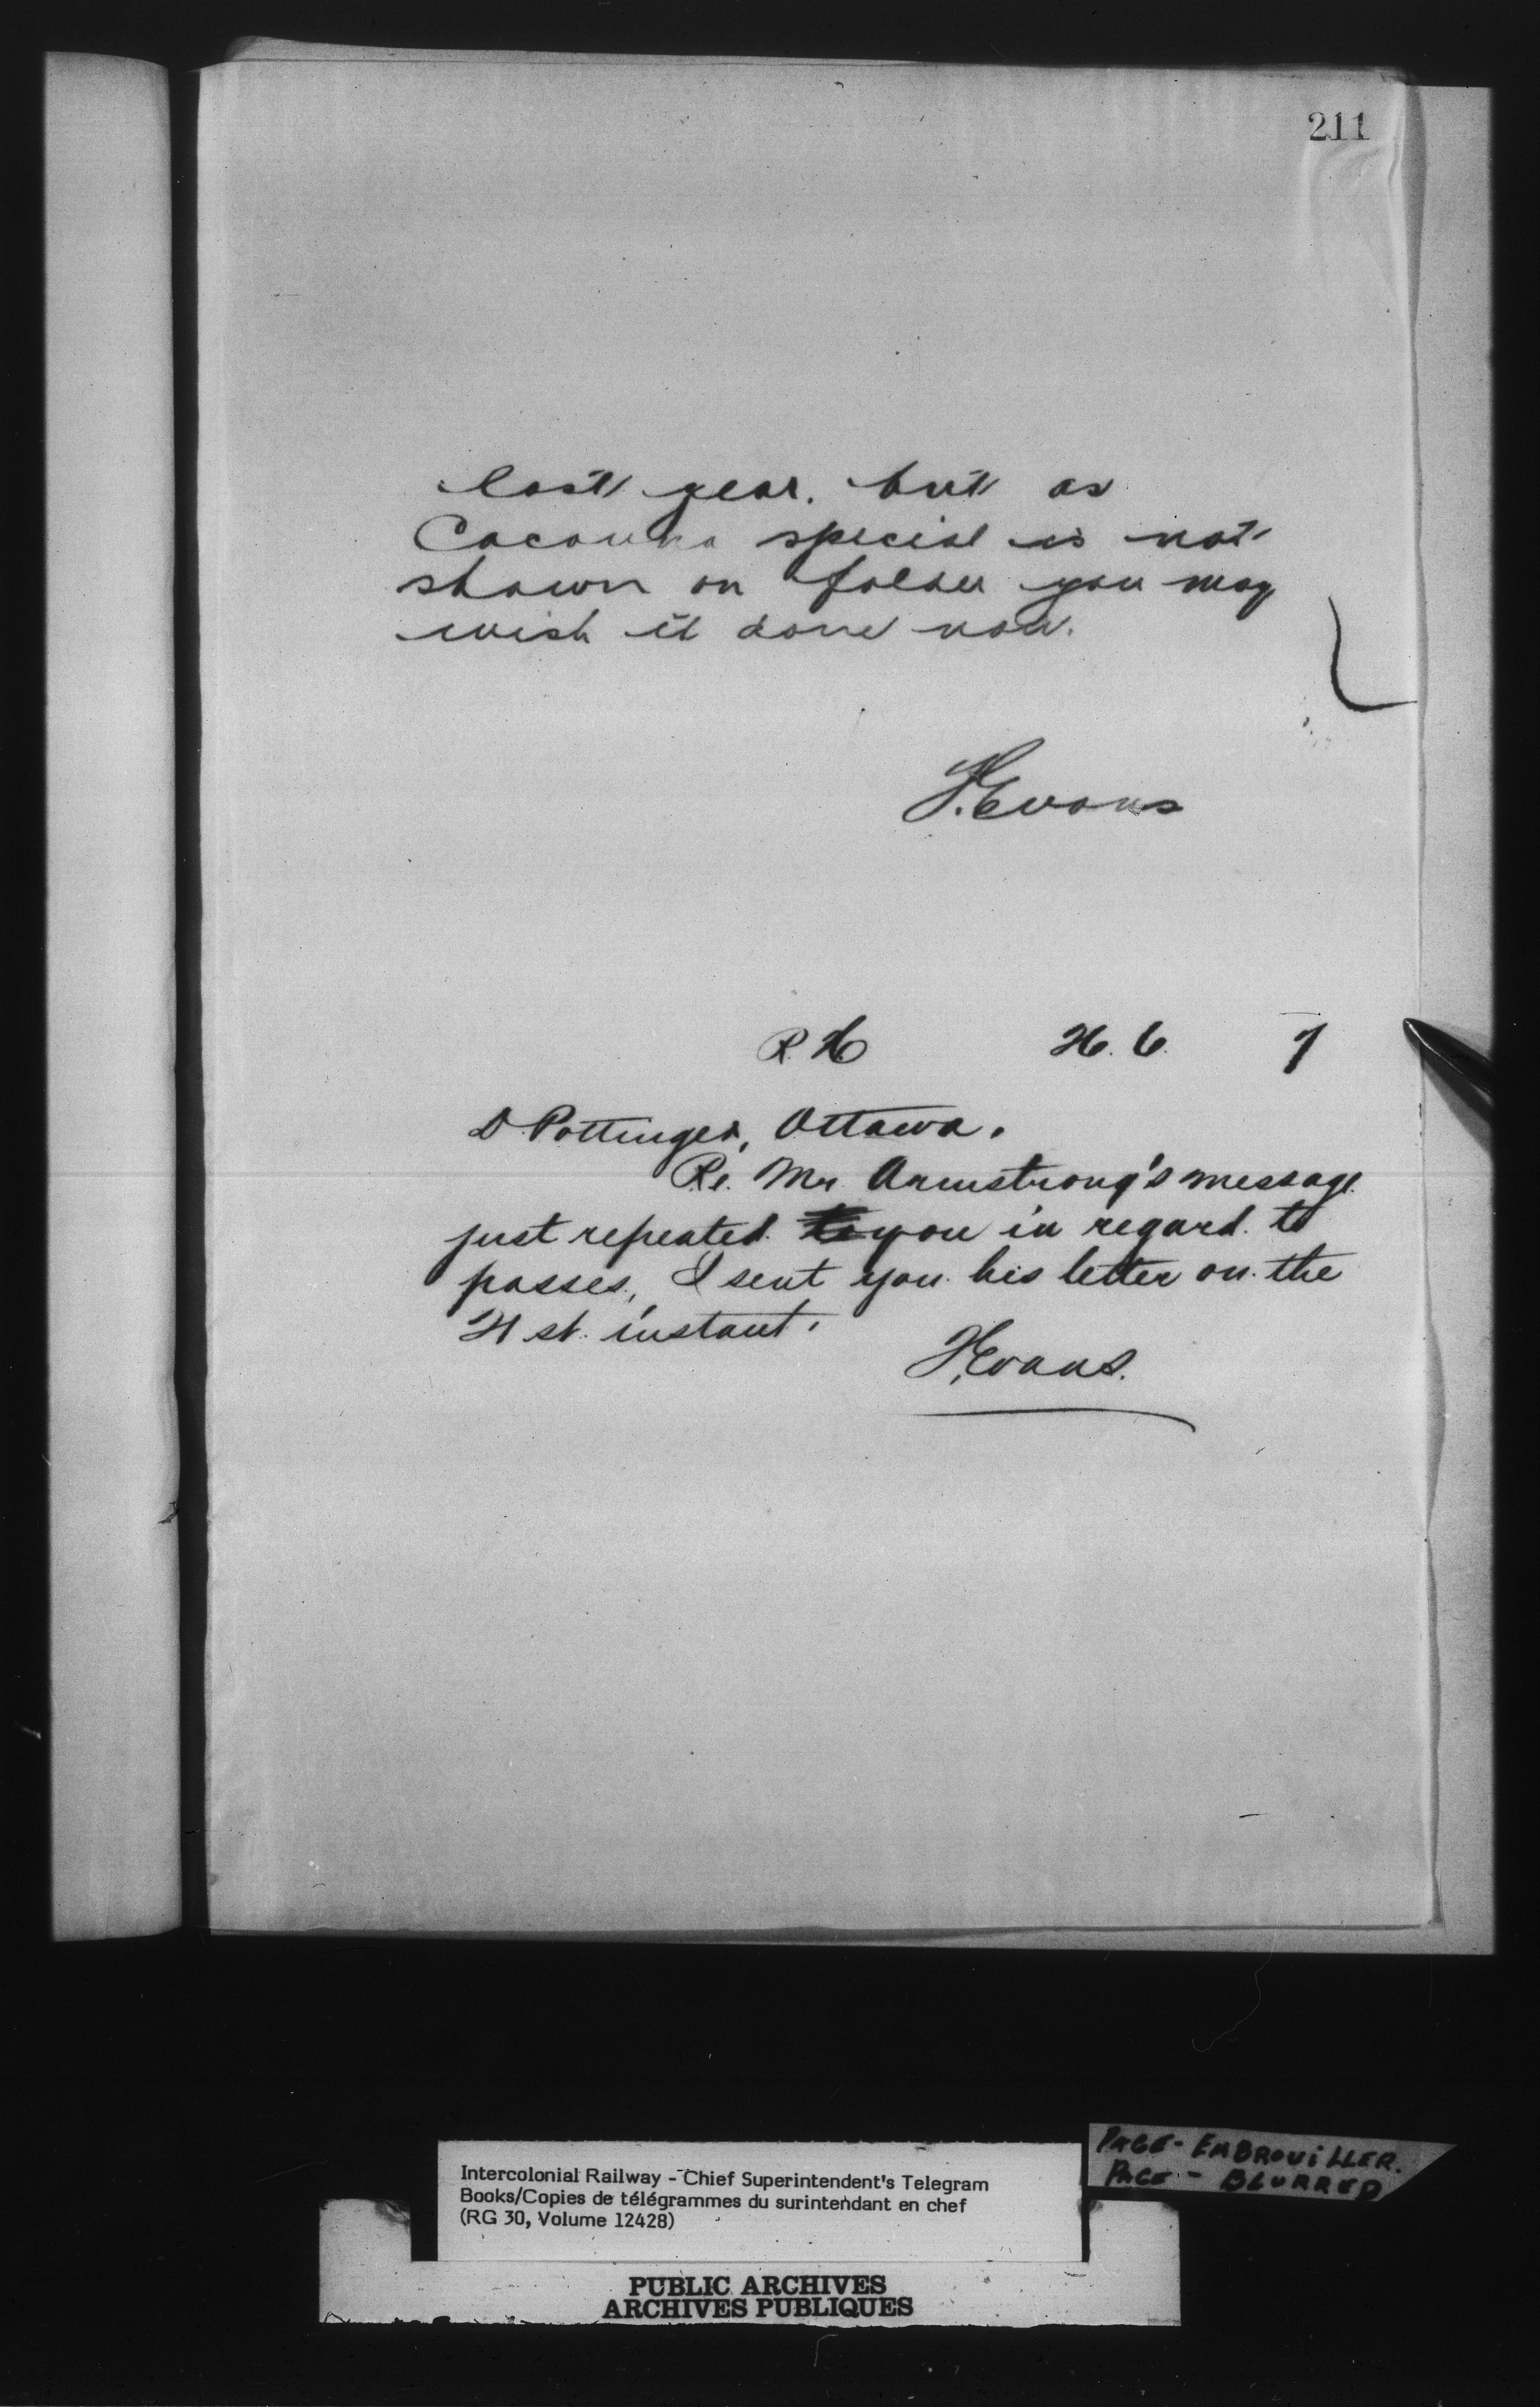 211
last year. but as
Cacouna special is not
shown on folder you may
wish it done now.
H. Evans
R.H H.C. 7
D. Pottinger, Ottawa.
Re. Mr Armstrong's message
just repeated you in regard to
passes, I sent you his letter on the
21st. instant.
H. Evans.
Intercolonial Railway - Chief Superintendent's Telegram
Books/Copies de télégrammes du surintendant en chef
(RG 30, Volume 12428)
PAGE - EMBROUILLER.
PAGE - BLURRED
PUBLIC ARCHIVES
ARCHIVES PUBLIQUES